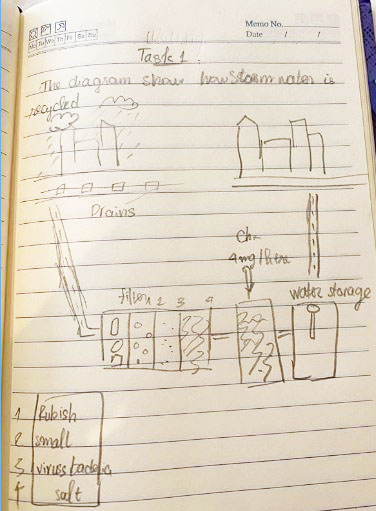 Memo No.
Mo Tu We Th Fr Sa Su
Date / /
Task 1
The diagram show how storm water is
recycled
Drains
4 mg/litre
filter 2 3 4
water storage
1 Rubish
2 small
3 viruss bacteria
4 salt